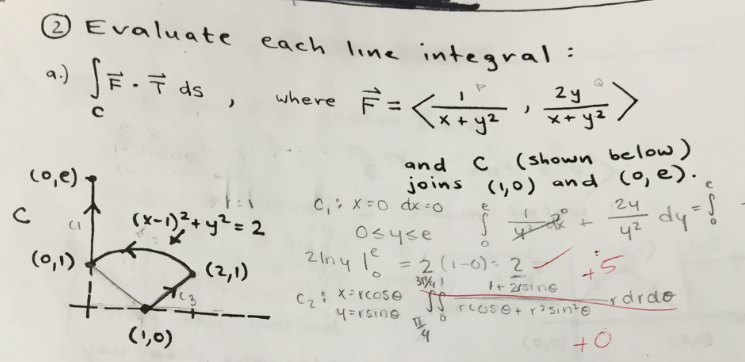 ② Evaluate each line integral :
a.) ∫_C F⃗ · T⃗ ds , where F⃗ = < 1/(x + y²) , 2y/(x + y²) >
P Q
and C (shown below)
joins (1,0) and (0,e).
(0,e)
C
C1
(x-1)² + y² = 2
(0,1)
(2,1)
C3
(1,0)
C₁: x=0 dx=0 ∫_0^e 1/y² dx 0 + 2y/y² dy = ∫_0^e
0≤y≤e
2lny |_0^e = 2(1-0) = 2 ✓ +5
C₂: x=rcosθ
y=rsinθ
∫_{π/4}^{3π/4} ∫_0^1 (1+2rsinθ)/(rcosθ + r²sin²θ) rdrdθ
+0